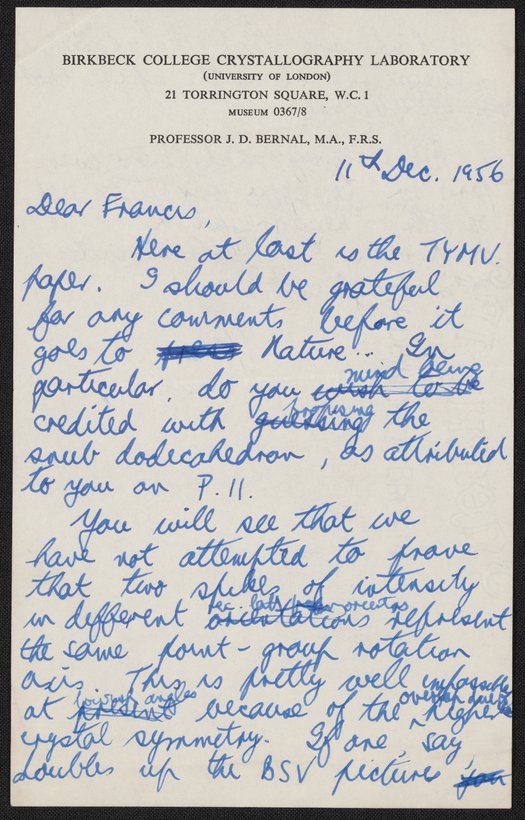 BIRKBECK COLLEGE CRYSTALLOGRAPHY LABORATORY
(UNIVERSITY OF LONDON)
21 TORRINGTON SQUARE, W.C.1
MUSEUM 0367/8
PROFESSOR J. D. BERNAL, M.A., F.R.S.
11th Dec. 1956
Dear Francis,
Here at last is the TYMV.
paper. I should be grateful
for any comments before it
goes to Nature... In
mind being
particular, do you wish to be
proposing
credited with guessing the
snub dodecahedron, as attributed
to you on P.11.
You will see that we
have not attempted to prove
that two spikes of intensity
rec. latt.
in different orientations represent
the same point-group rotation
axis. This is pretty well impossible
low angles
at present because of the higher
crystal symmetry. If one, say
doubles up the BSV pictures you